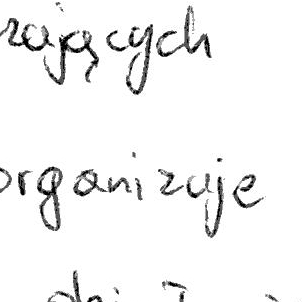 rających
organizuje